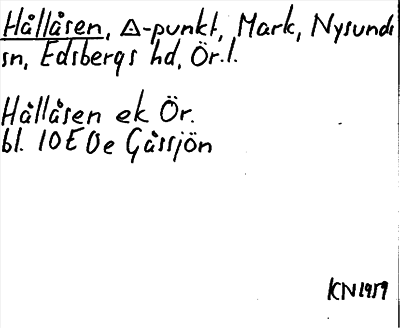 Hållåsen, △-punkt, Mark, Nysunds
sn, Edsbergs hd, Ör.l.
Hållåsen ek Ör.
bl. 10E 0e Gåssjön
KN 1959